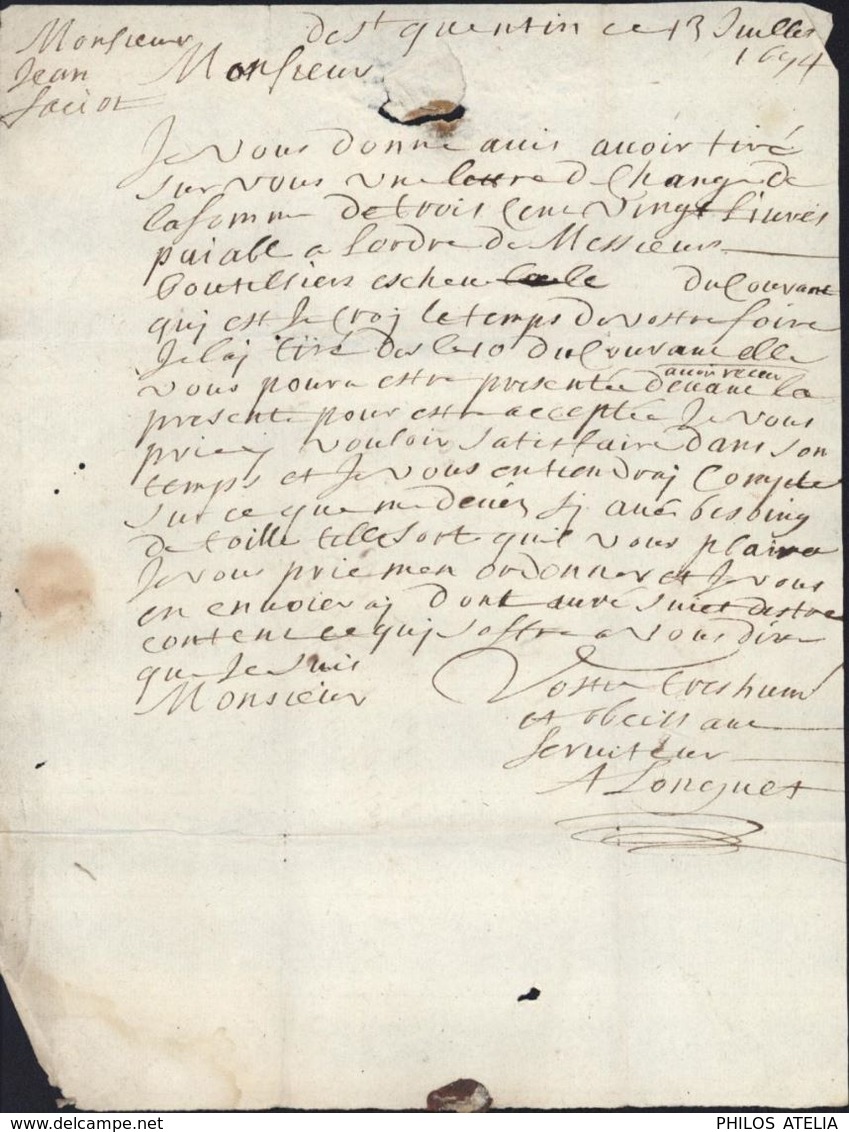 de St quentin ce 13 Juillet
1694
Monsieur
Jean
Monsieur
Je vous donne avis avoir tiré
sur vous une lettre de Change de
la somme de trois Cent vingt livres
paiable a lordre de Messieurs
boutelliers escheu le du Courant
quj est Je Croj le temps de vostre foire
Je laj tiré des le 10 du Courant elle
vous poura estre presentée devant la
avoir receu
presente pour estre acceptée Je vous
prie y vouloir satisfaire dans son
temps et Je vous en tiendraj Compte
sur ce que me devés sj avés besoing
de toille telle sort quil vous plaira
Je vous prie men ordonner et Je vous
en envoieraj dont auré suiet destre
content ce quj soffre a vous dire
que Je suis
Monsieur
Vostre tres humb
et obeissant
serviteur
A Longuet
PHILOS ATELIA